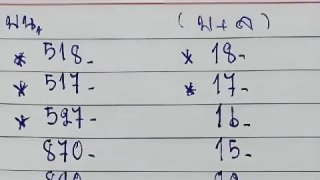 มนน. (บ+ล)
* 518- * 18-
* 517- * 17-
* 597- 16-
870- 15-